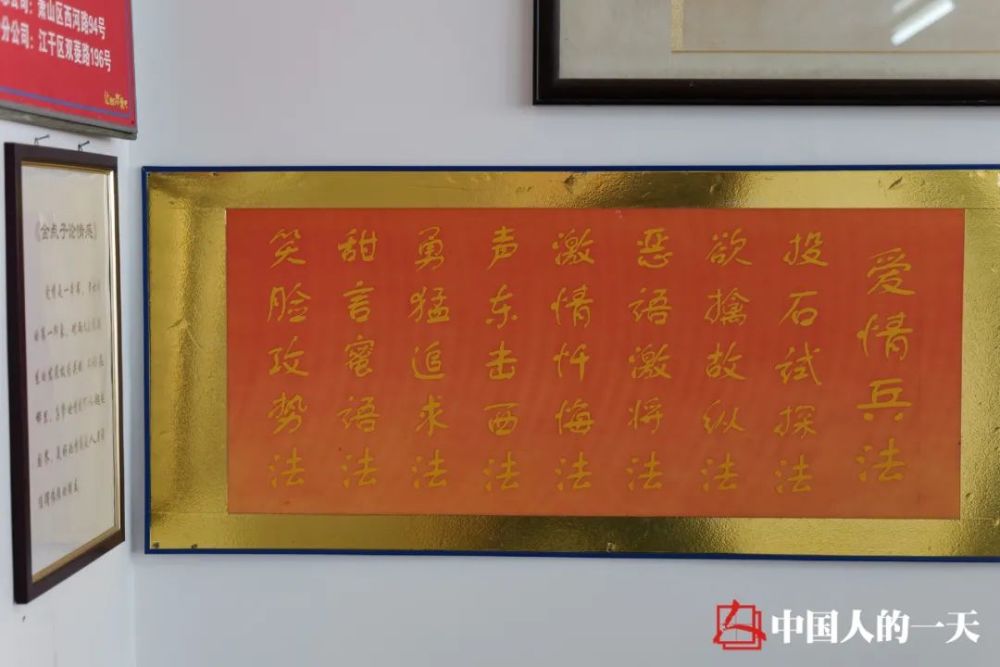 公司：萧山区西河路94号
分公司：江干区双菱路196号
《金点子论情感》
爱情兵法
投石试探法
欲擒故纵法
恶语激将法
激情忏悔法
声东击西法
勇猛追求法
甜言蜜语法
笑脸攻势法
中国人的一天